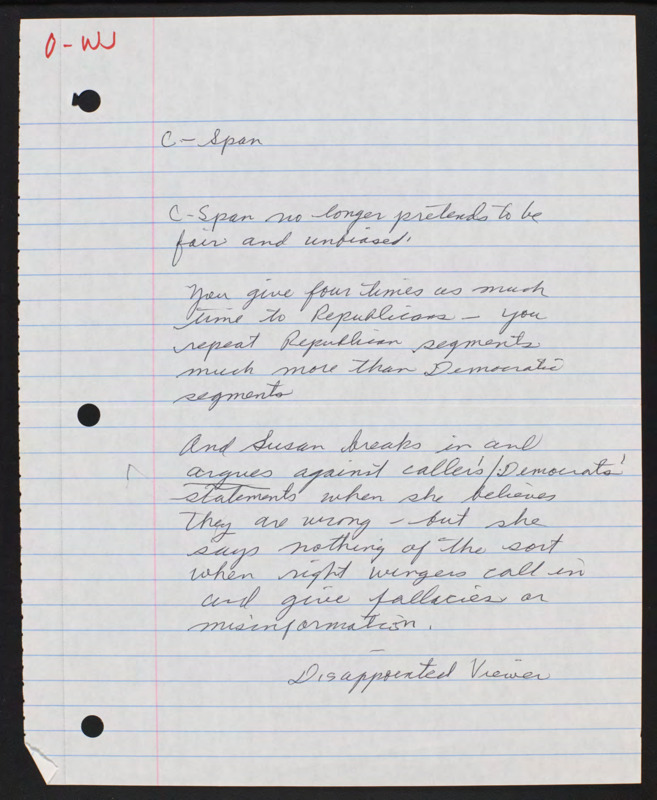 O-WJ
C- Span
C-Span no longer pretends to be
fair and unbiased.
You give four times as much
time to Republicans - you
repeat Republican segments
much more than Democratic
segments
And Susan breaks in and
argues against caller's/Democrats'
statements when she believes
they are wrong - but she
says nothing of the sort
when right wingers call in
and give fallacies or
misinformation.
Disappointed Viewer